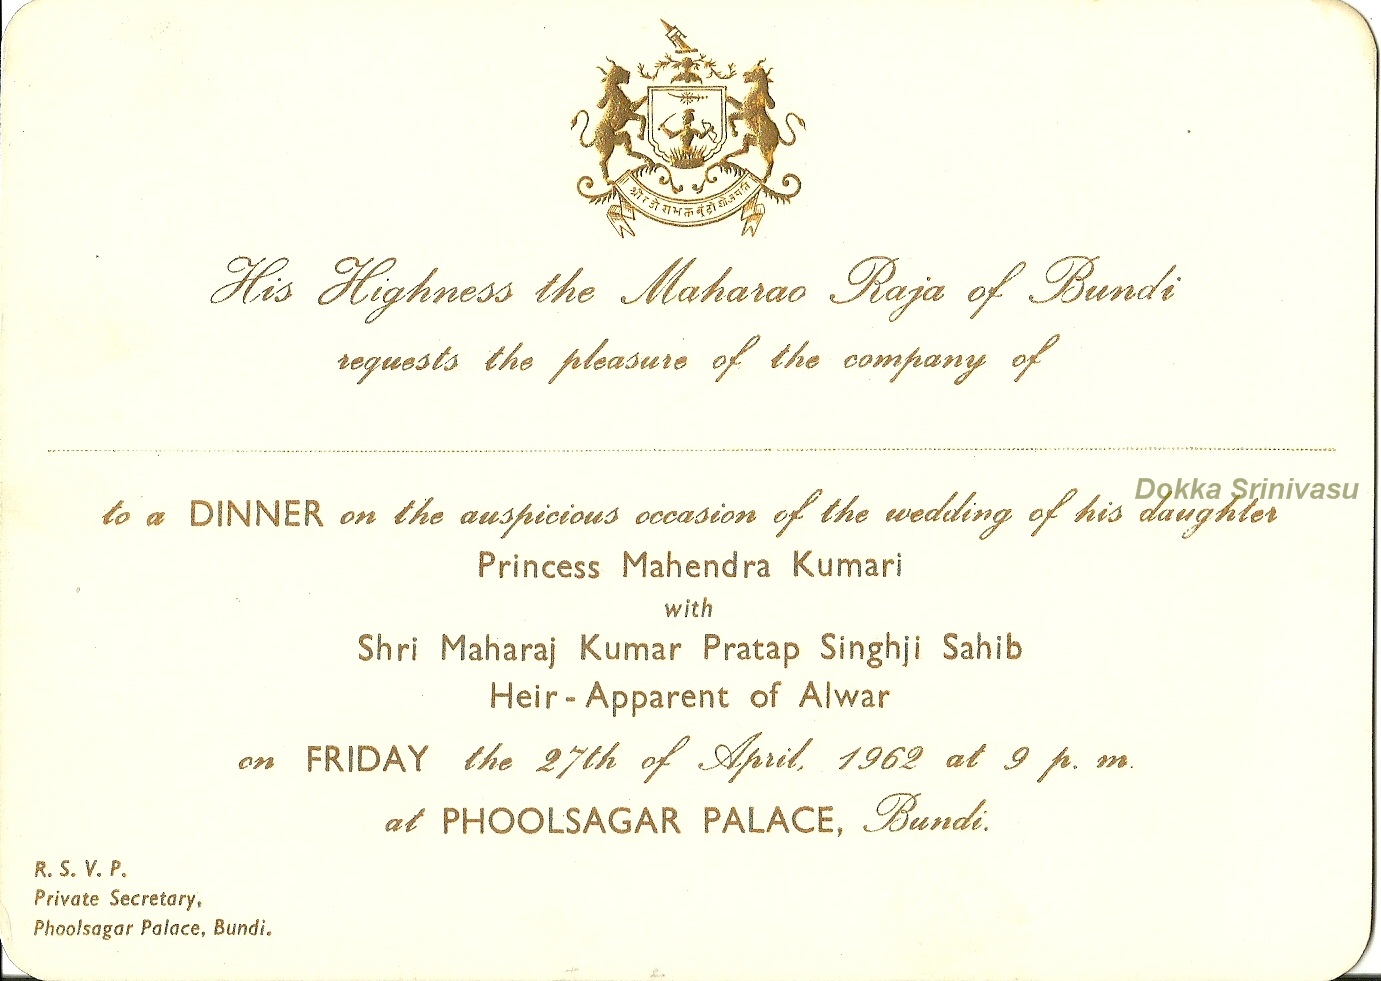 His Highness the Maharao Raja of Bundi
requests the pleasure of the company of
Dokka Srinivasu
to a DINNER on the auspicious occasion of the wedding of his daughter
Princess Mahendra Kumari
with
Shri Maharaj Kumar Pratap Singhji Sahib
Heir-Apparent of Alwar
on FRIDAY the 27th of April, 1962 at 9 p. m.
at PHOOLSAGAR PALACE, Bundi.
R. S. V. P.
Private Secretary,
Phoolsagar Palace, Bundi.